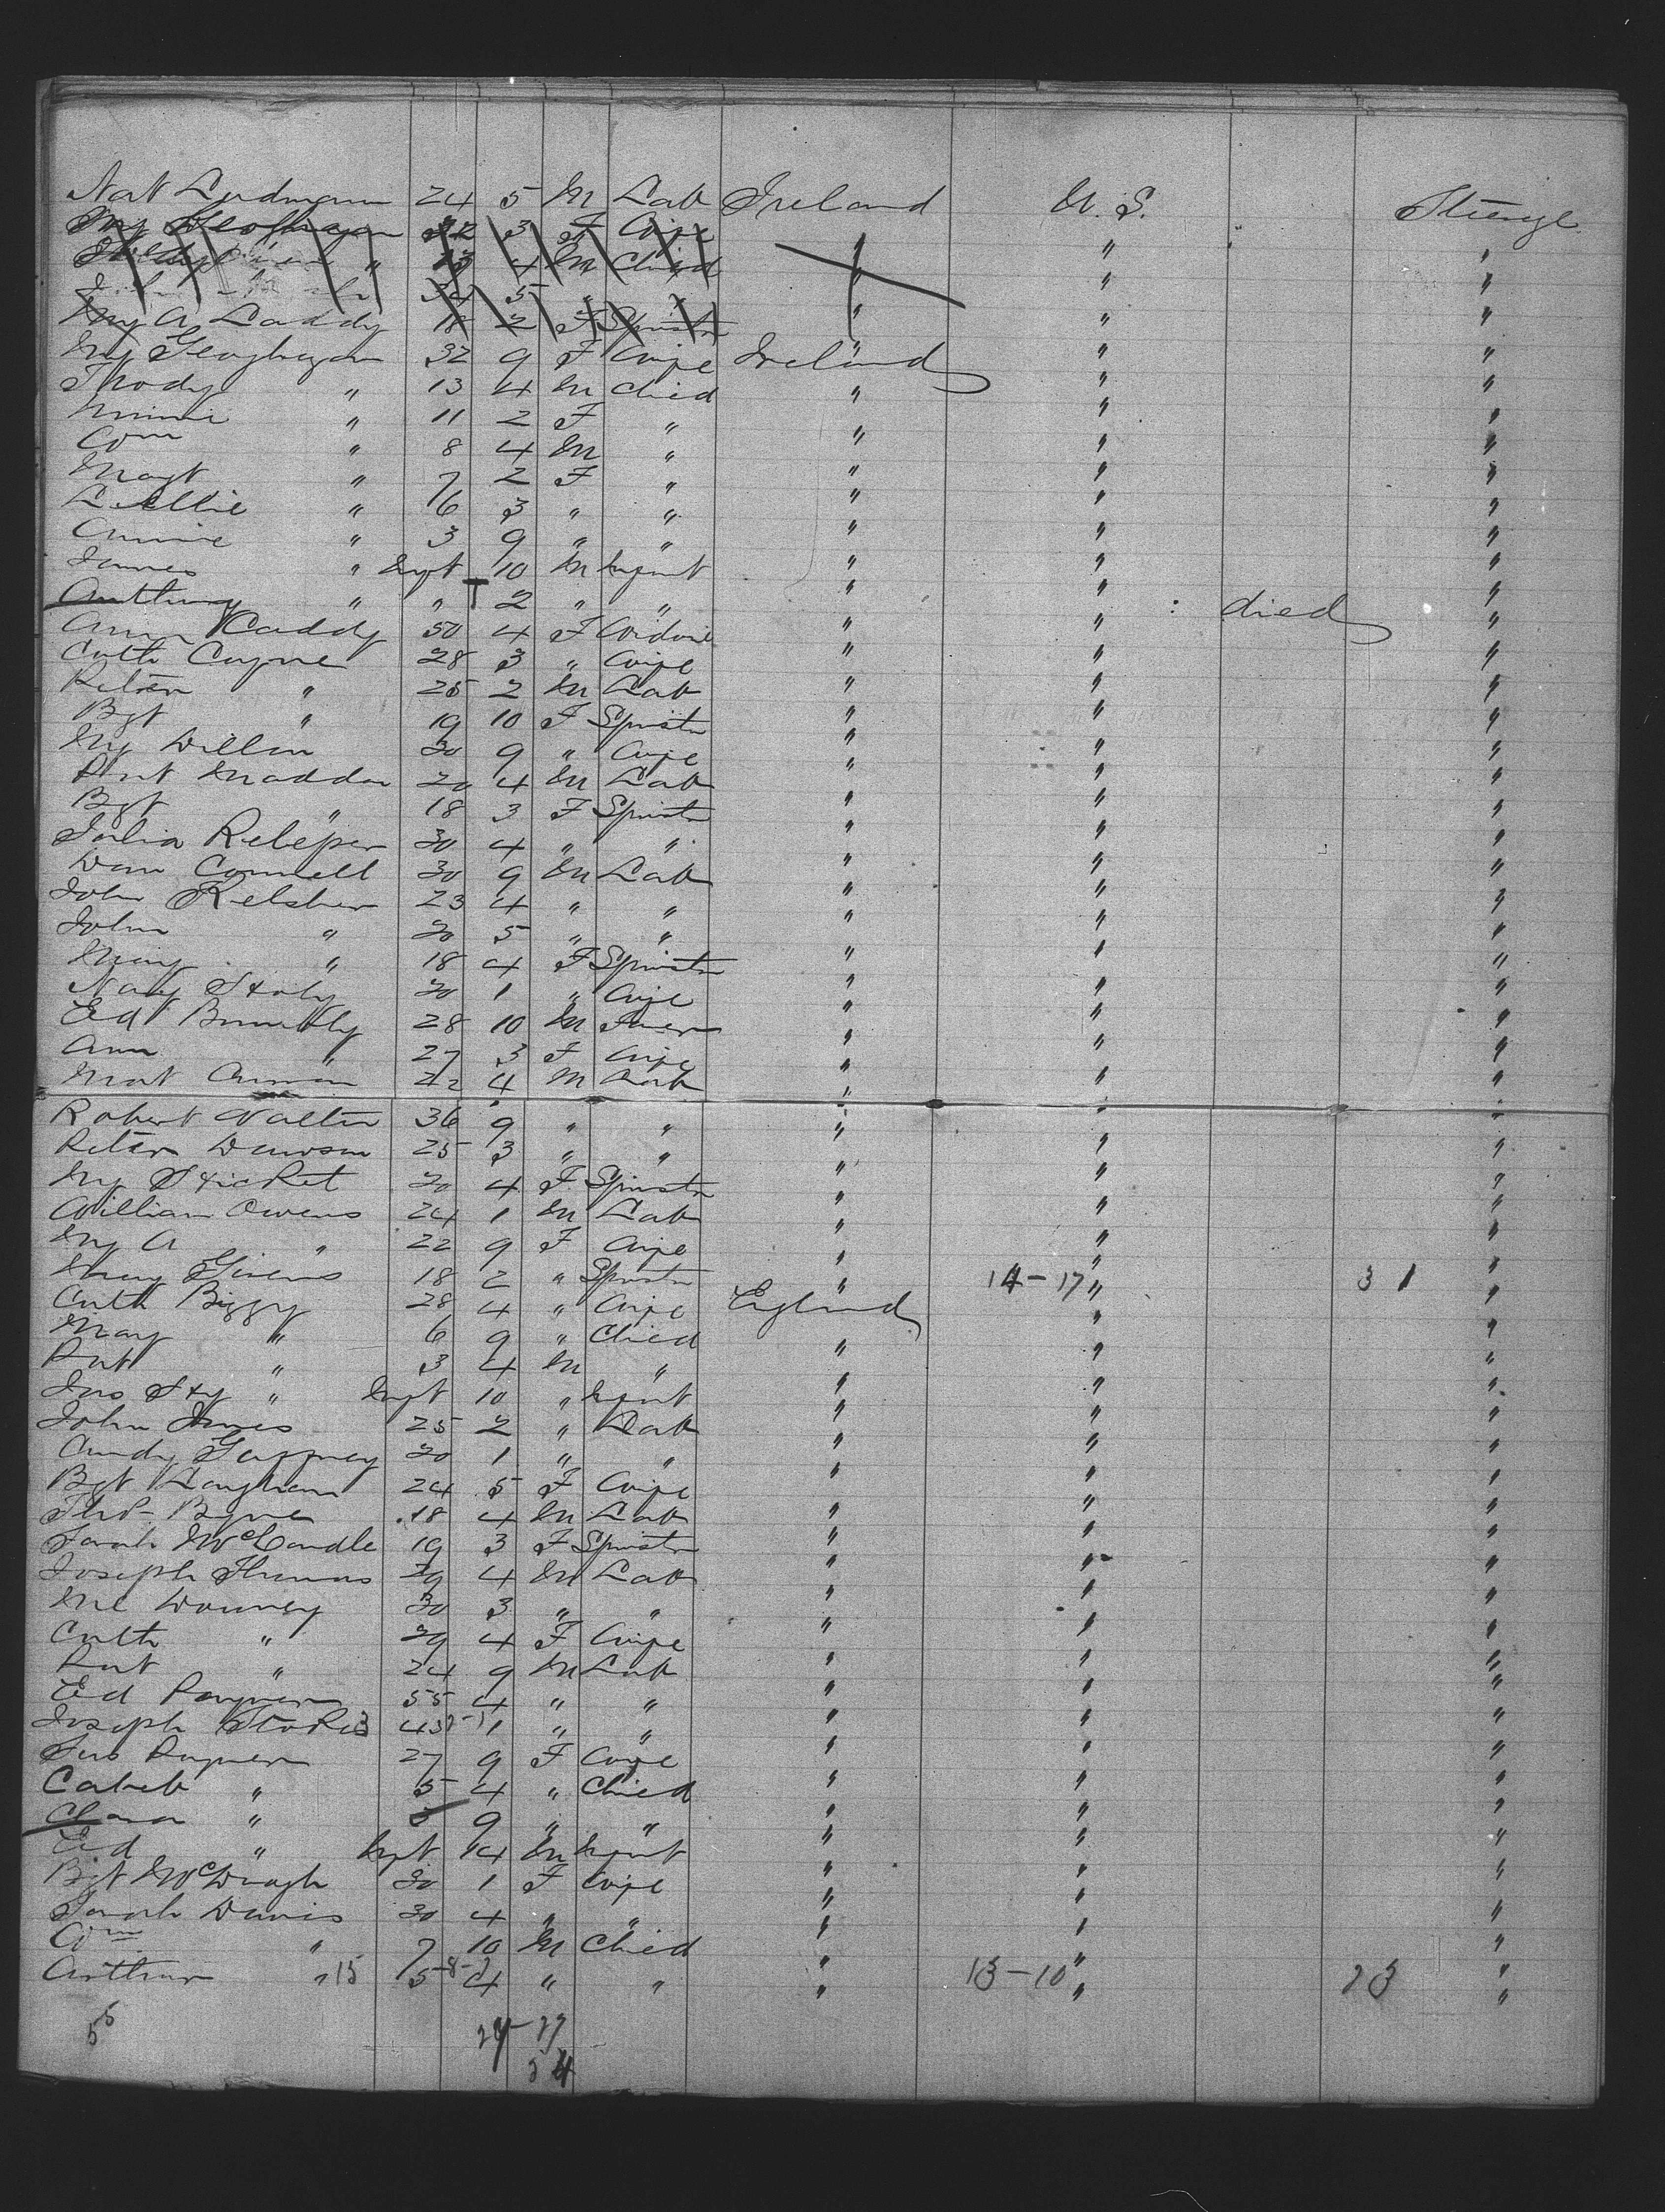 Nat Ludmann 24 5 M Lab Ireland U. S. Steerage
My Geoghegan 32 3 F Wife " " "
" 13 4 M Child " " "
34 5 " " " "
My A Caddy 18 2 F Spinstr " " "
My Geoghegan 32 9 F Wife Ireland " "
Thody " 13 4 M Child " " "
Minnie " 11 2 F " " " "
Wm " 8 4 M " " " "
Magt " 7 2 F " " " "
Lillie " 6 3 " " " " "
Annie " 3 9 " " " " "
James " Inft 10 M Infant " " "
Anthony " " 2 " " " " died "
Ann Caddy 50 4 F Widow " " "
Cath Coyne 28 3 " Wife " " "
Peter " 25 2 M Lab " " "
Bgt " 19 10 F Spinstr " " "
My Dillon 30 9 " Wife " " "
Pat Madden 20 4 M Lab " " "
Bgt " 18 3 F Spinstr " " "
Julia 30 4 " " " " "
Dan Connell 30 9 M Lab " " "
John Kelsher 23 4 " " " " "
John " 20 5 " " " " "
Mary " 18 4 F Spinstr " " "
20 1 " Wife " " "
Ed 28 10 M " " "
Ann " 27 3 F Wife " " "
Mat 22 4 M Lab " " "
Robert Walter 36 9 " " " " "
Peter Dawson 25 3 " " " " "
My 20 4 F Spinstr " " "
William Owens 24 1 M Lab " " "
My A " 22 9 F Wife " " "
Mary Givens 18 2 " Spinstr " 14-17 " 31 "
Cath Biggy 28 4 " Wife England " "
Mary " 6 9 " Child " " "
Pat " 3 4 M " " " "
Jno " Inft 10 " Infant " " "
John Jones 25 2 " Lab " " "
Andy Gaffney 20 1 " " " " "
Bgt Langhan 24 5 F Wife " " "
Thos Byrne 18 4 M Lab " " "
Sarah McCardle 19 3 F Spinstr " " "
Joseph Thomas 29 4 M Lab " " "
Ml Downey 30 3 " " " " "
Cath " 29 4 F Wife " " "
Pat " 24 9 M Lab " " "
Ed 55 4 " " " " "
Joseph Stokes 43 1 " " " " "
27 9 F Wife " " "
Caleb " 5 4 " Child " " "
Clara " 9 " " " " "
Ed " Inft 4 M Infant " " "
Bgt McDonagh 30 1 F Wife " " "
Sarah Davis 30 4 " " " " "
Wm " 7 10 M Child " " "
Arthur " 15 5-8-7 4 " " " 13-10 " 23 "
55 24-27
54